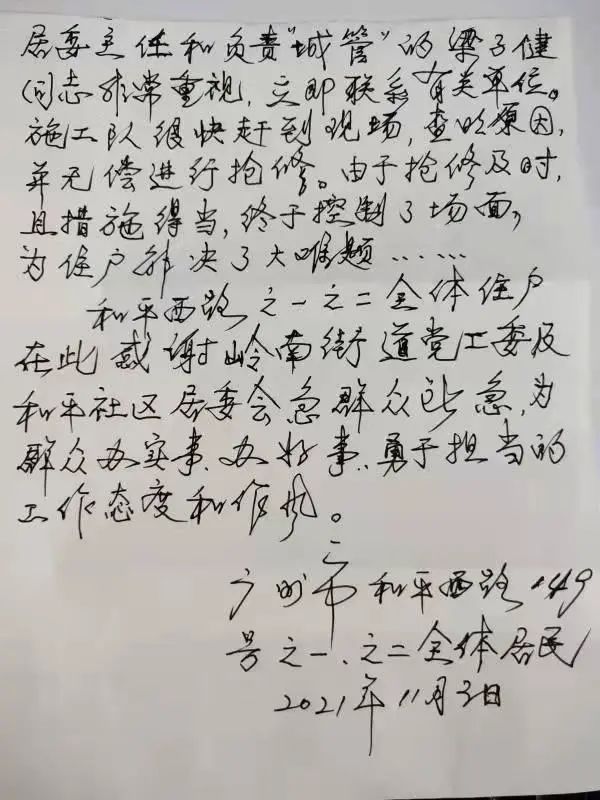 居委主任和负责“城管”的梁子健
同志非常重视，立即联系有关单位。
施工队很快赶到现场，查明原因，
并无偿进行抢修。由于抢修及时，
且措施得当，终于控制了场面，
为住户解决了大难题……
和平西路之一之二全体住户
在此感谢岭南街道党工委及
和平社区居委会急群众所急，为
群众办实事、办好事、勇于担当的
工作态度和作风。
广州市和平西路149
号之一、之二全体居民
2021年11月3日